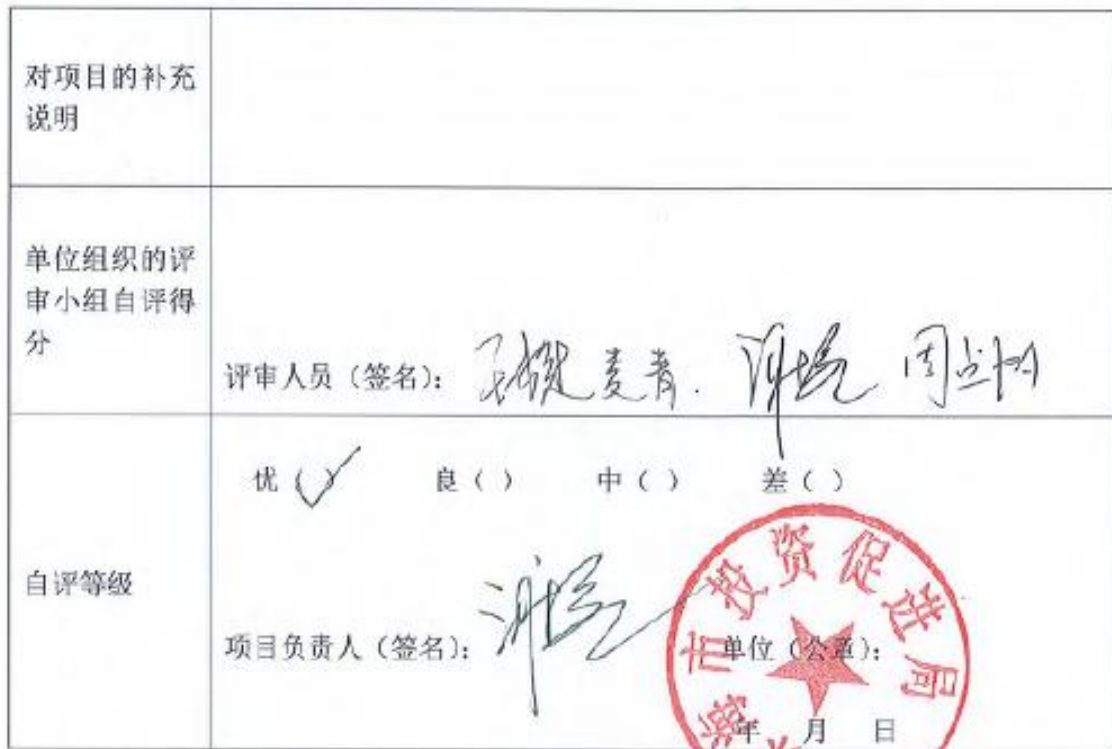 对项目的补充
说明
单位组织的评
审小组自评得
分
评审人员（签名）： 麦青. 周
优（✓） 良（ ） 中（ ） 差（ ）
自评等级
项目负责人（签名）：
单位（公章）：
年 月 日
海市投资促进局